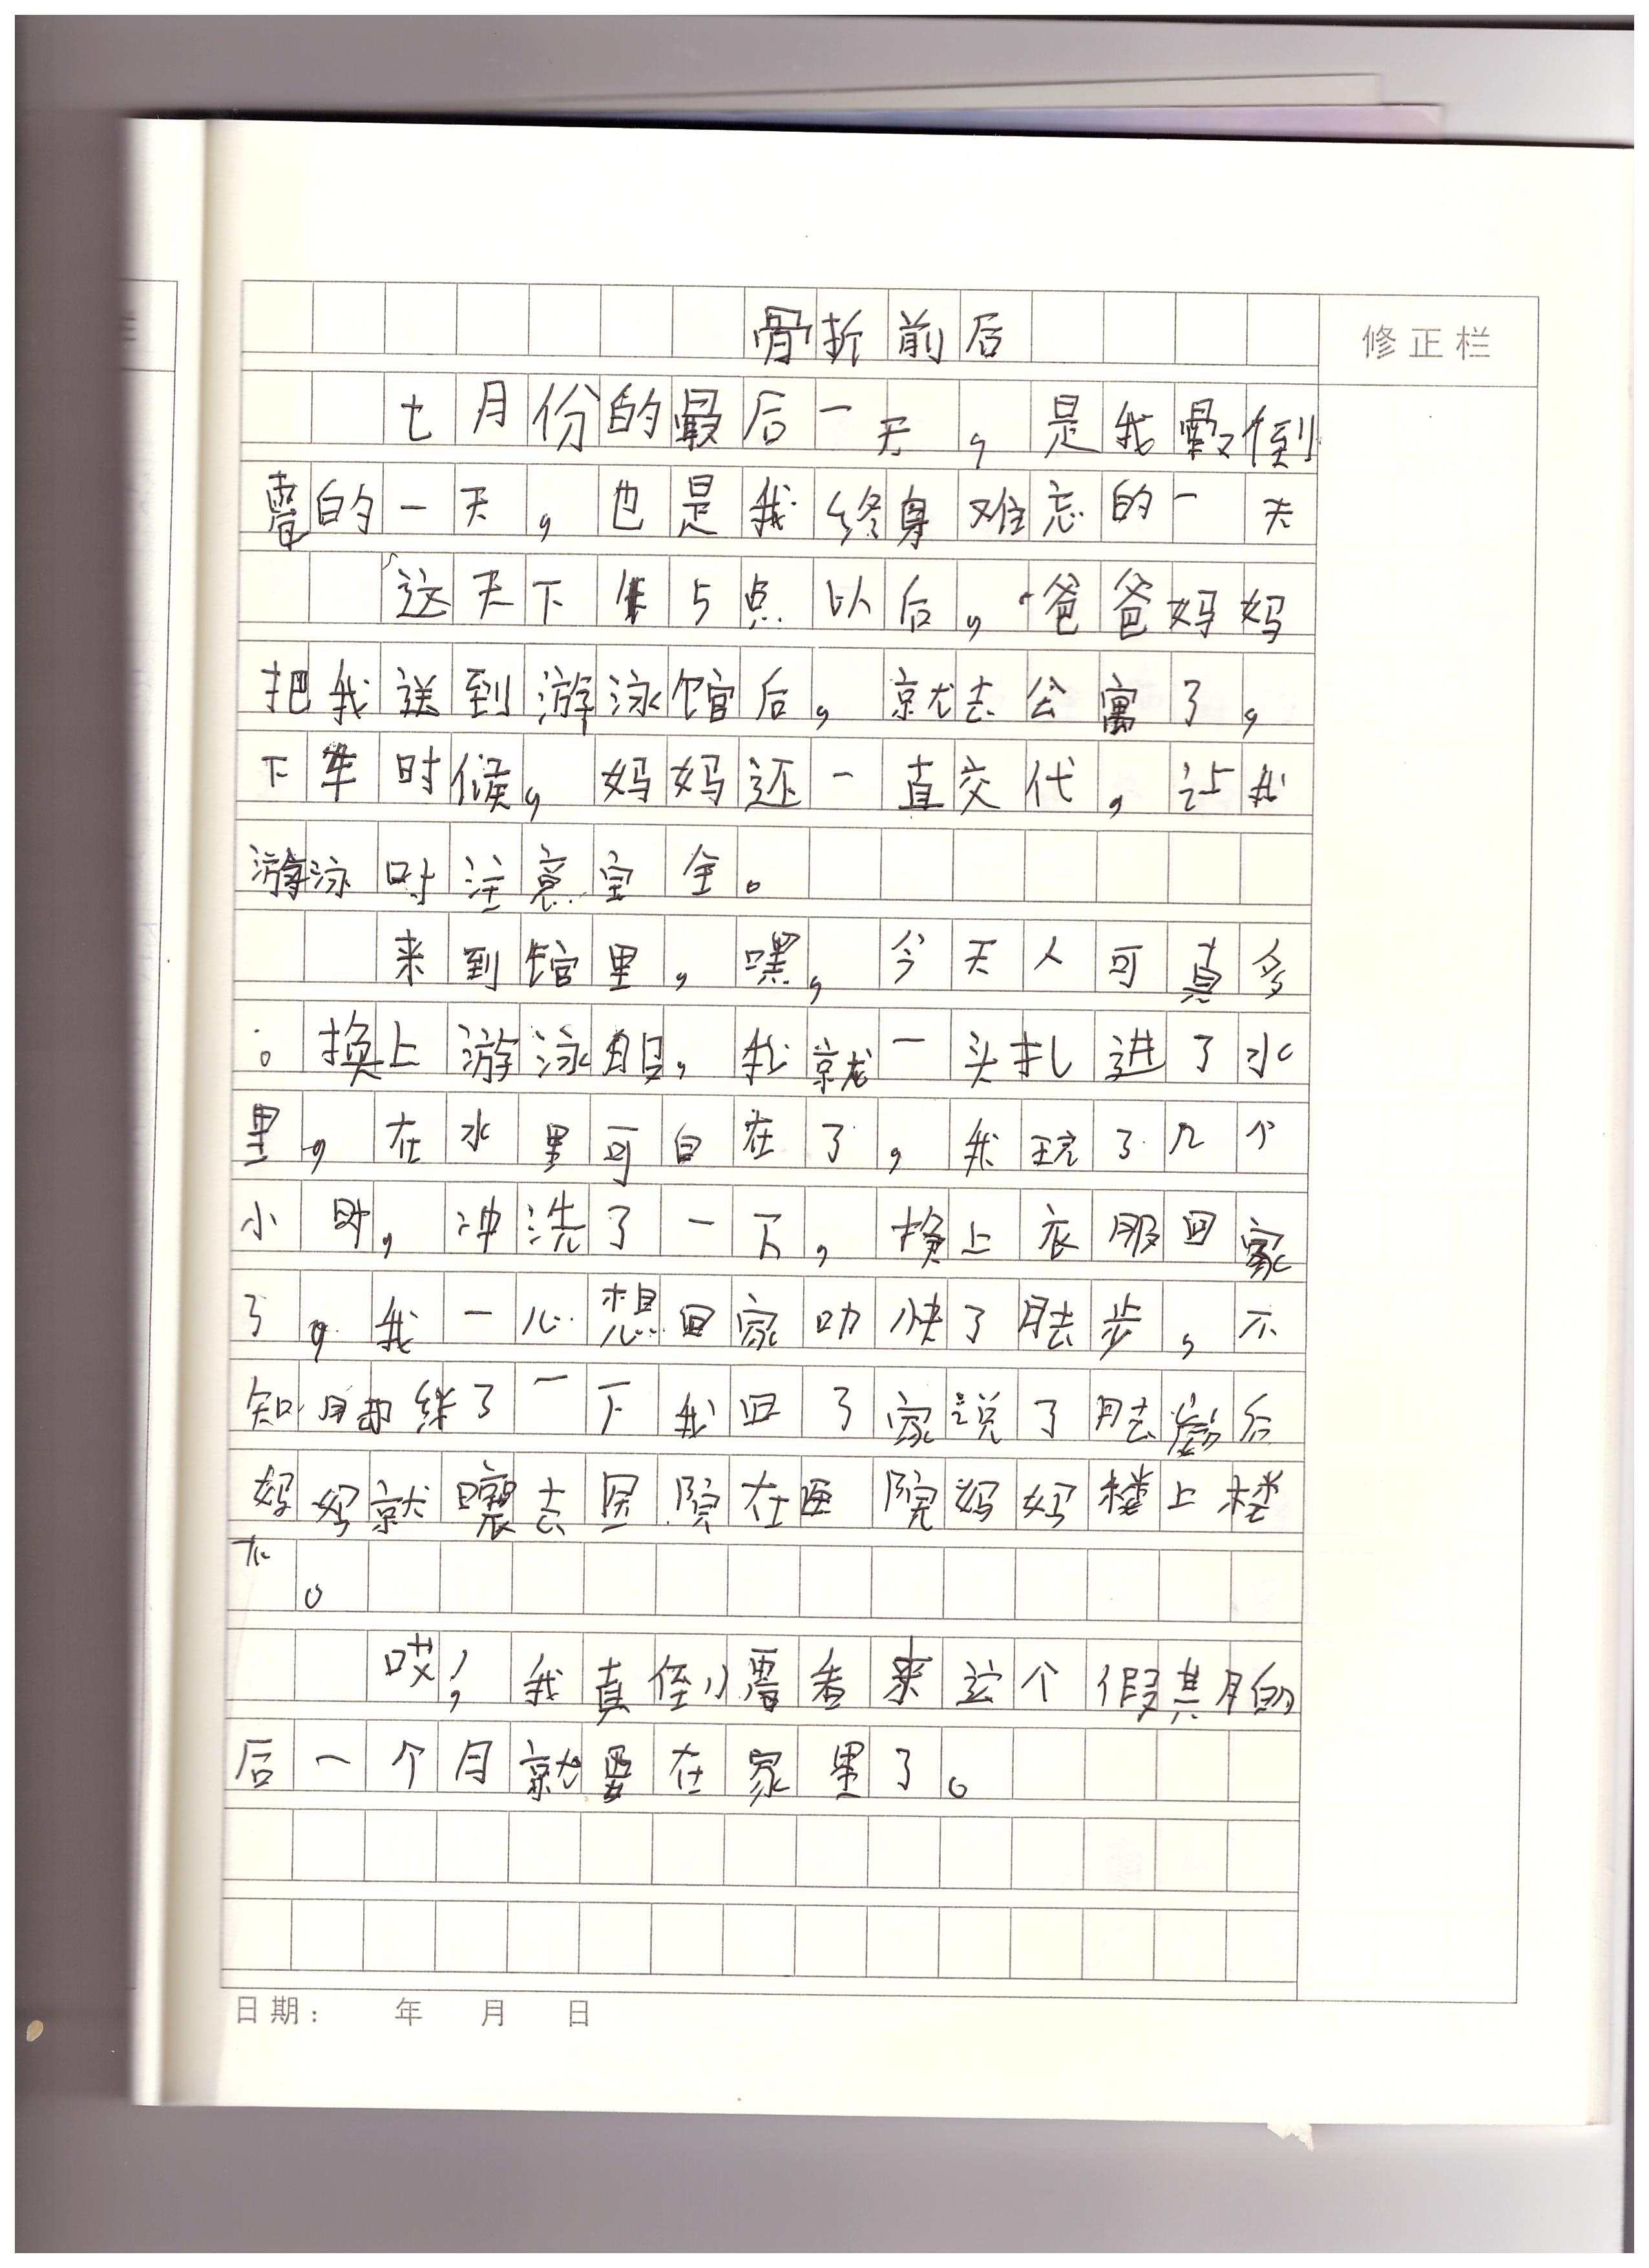 骨折前后
修正栏
七月份的最后一天,是我最倒
霉的一天,也是我终身难忘的一天
这天下午5点以后,爸爸妈妈
把我送到游泳馆后,就去公寓了,
下车时候,妈妈还一直交代,让我
游泳时注意安全。
来到馆里,嘿,今天人可真多
。换上游泳,我就一头扎进了水
里,在水里可自在了,我玩了几个
小时,冲洗了一下,换上衣服回家
了。我一心想回家加快了脚步,不
知绊了一下我回了家说了脚疼后
妈妈就嚷去医院在医院妈妈楼上楼
下。
哎,我真倒霉看来这个假期的
后一个月就要在家里了。
日期: 年 月 日